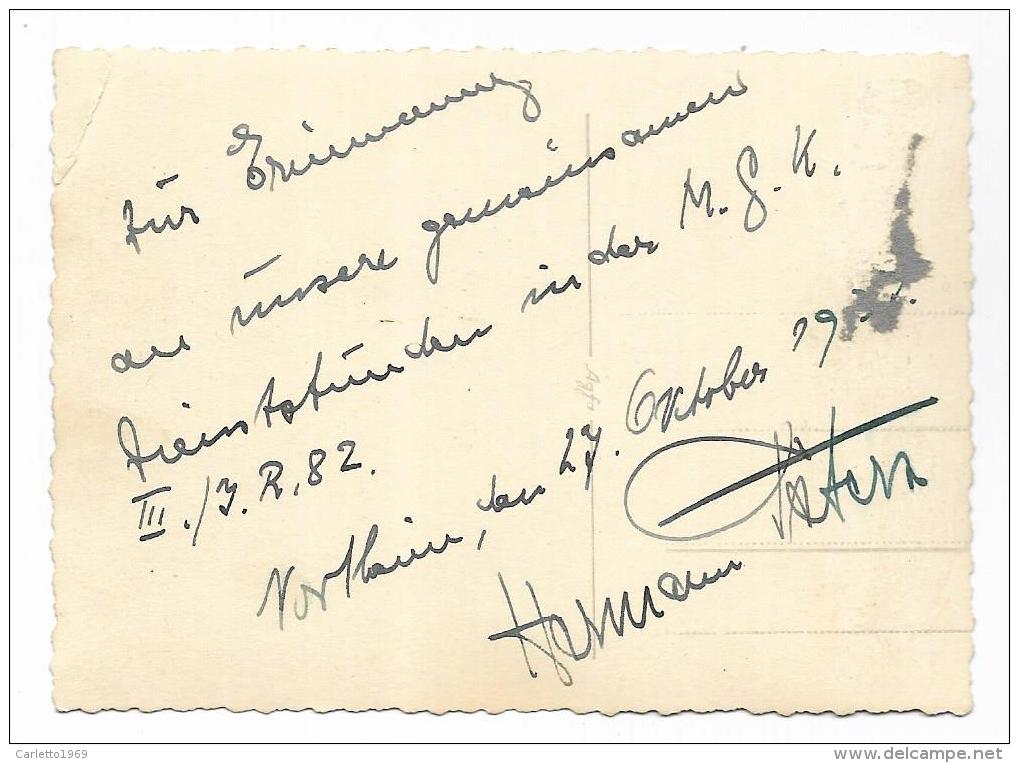 Zur Erinnerung
an unsere gemeinsamen
Dienststunden in der M.G.K.
III./J.R.82.
Northeim, den 27. Oktober 19
Hermann
Agfa
Carletto1969
www.delcampe.net